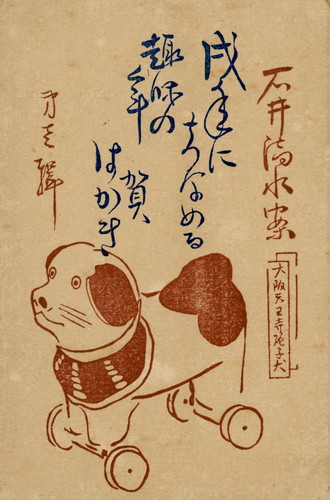 石井滴水案
大阪天王寺張子犬
戌年に
ちなめる
趣味の
年賀
はがき
第壱輯